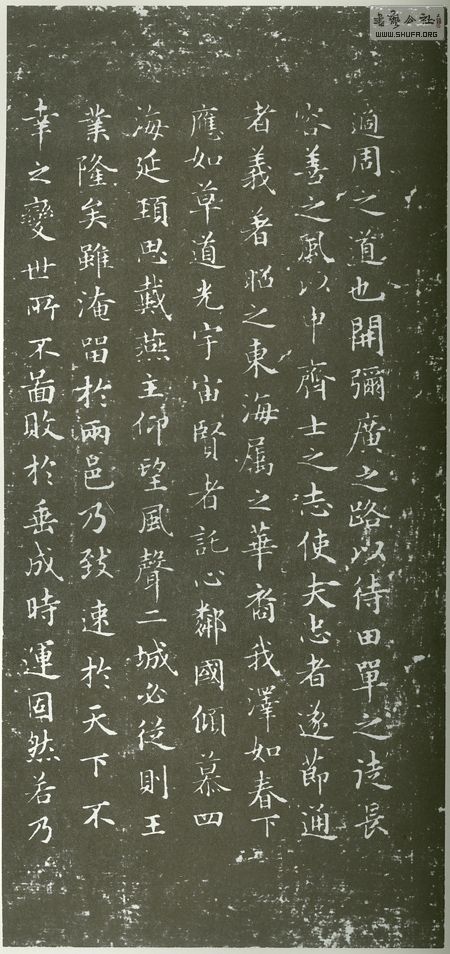 適周之道也開彌廣之路以待田單之徒長
容善之風以申齊士之志使夫忠者遂節通
者義著昭之東海屬之華裔我澤如春下
應如草道光宇宙賢者託心鄰國傾慕四
海延頸思戴燕主仰望風聲二城必從則王
業隆矣雖淹留於兩邑乃致速於天下不
幸之變世所不啚敗於垂成時運固然若乃
書法公社
WWW.SHUFA.ORG